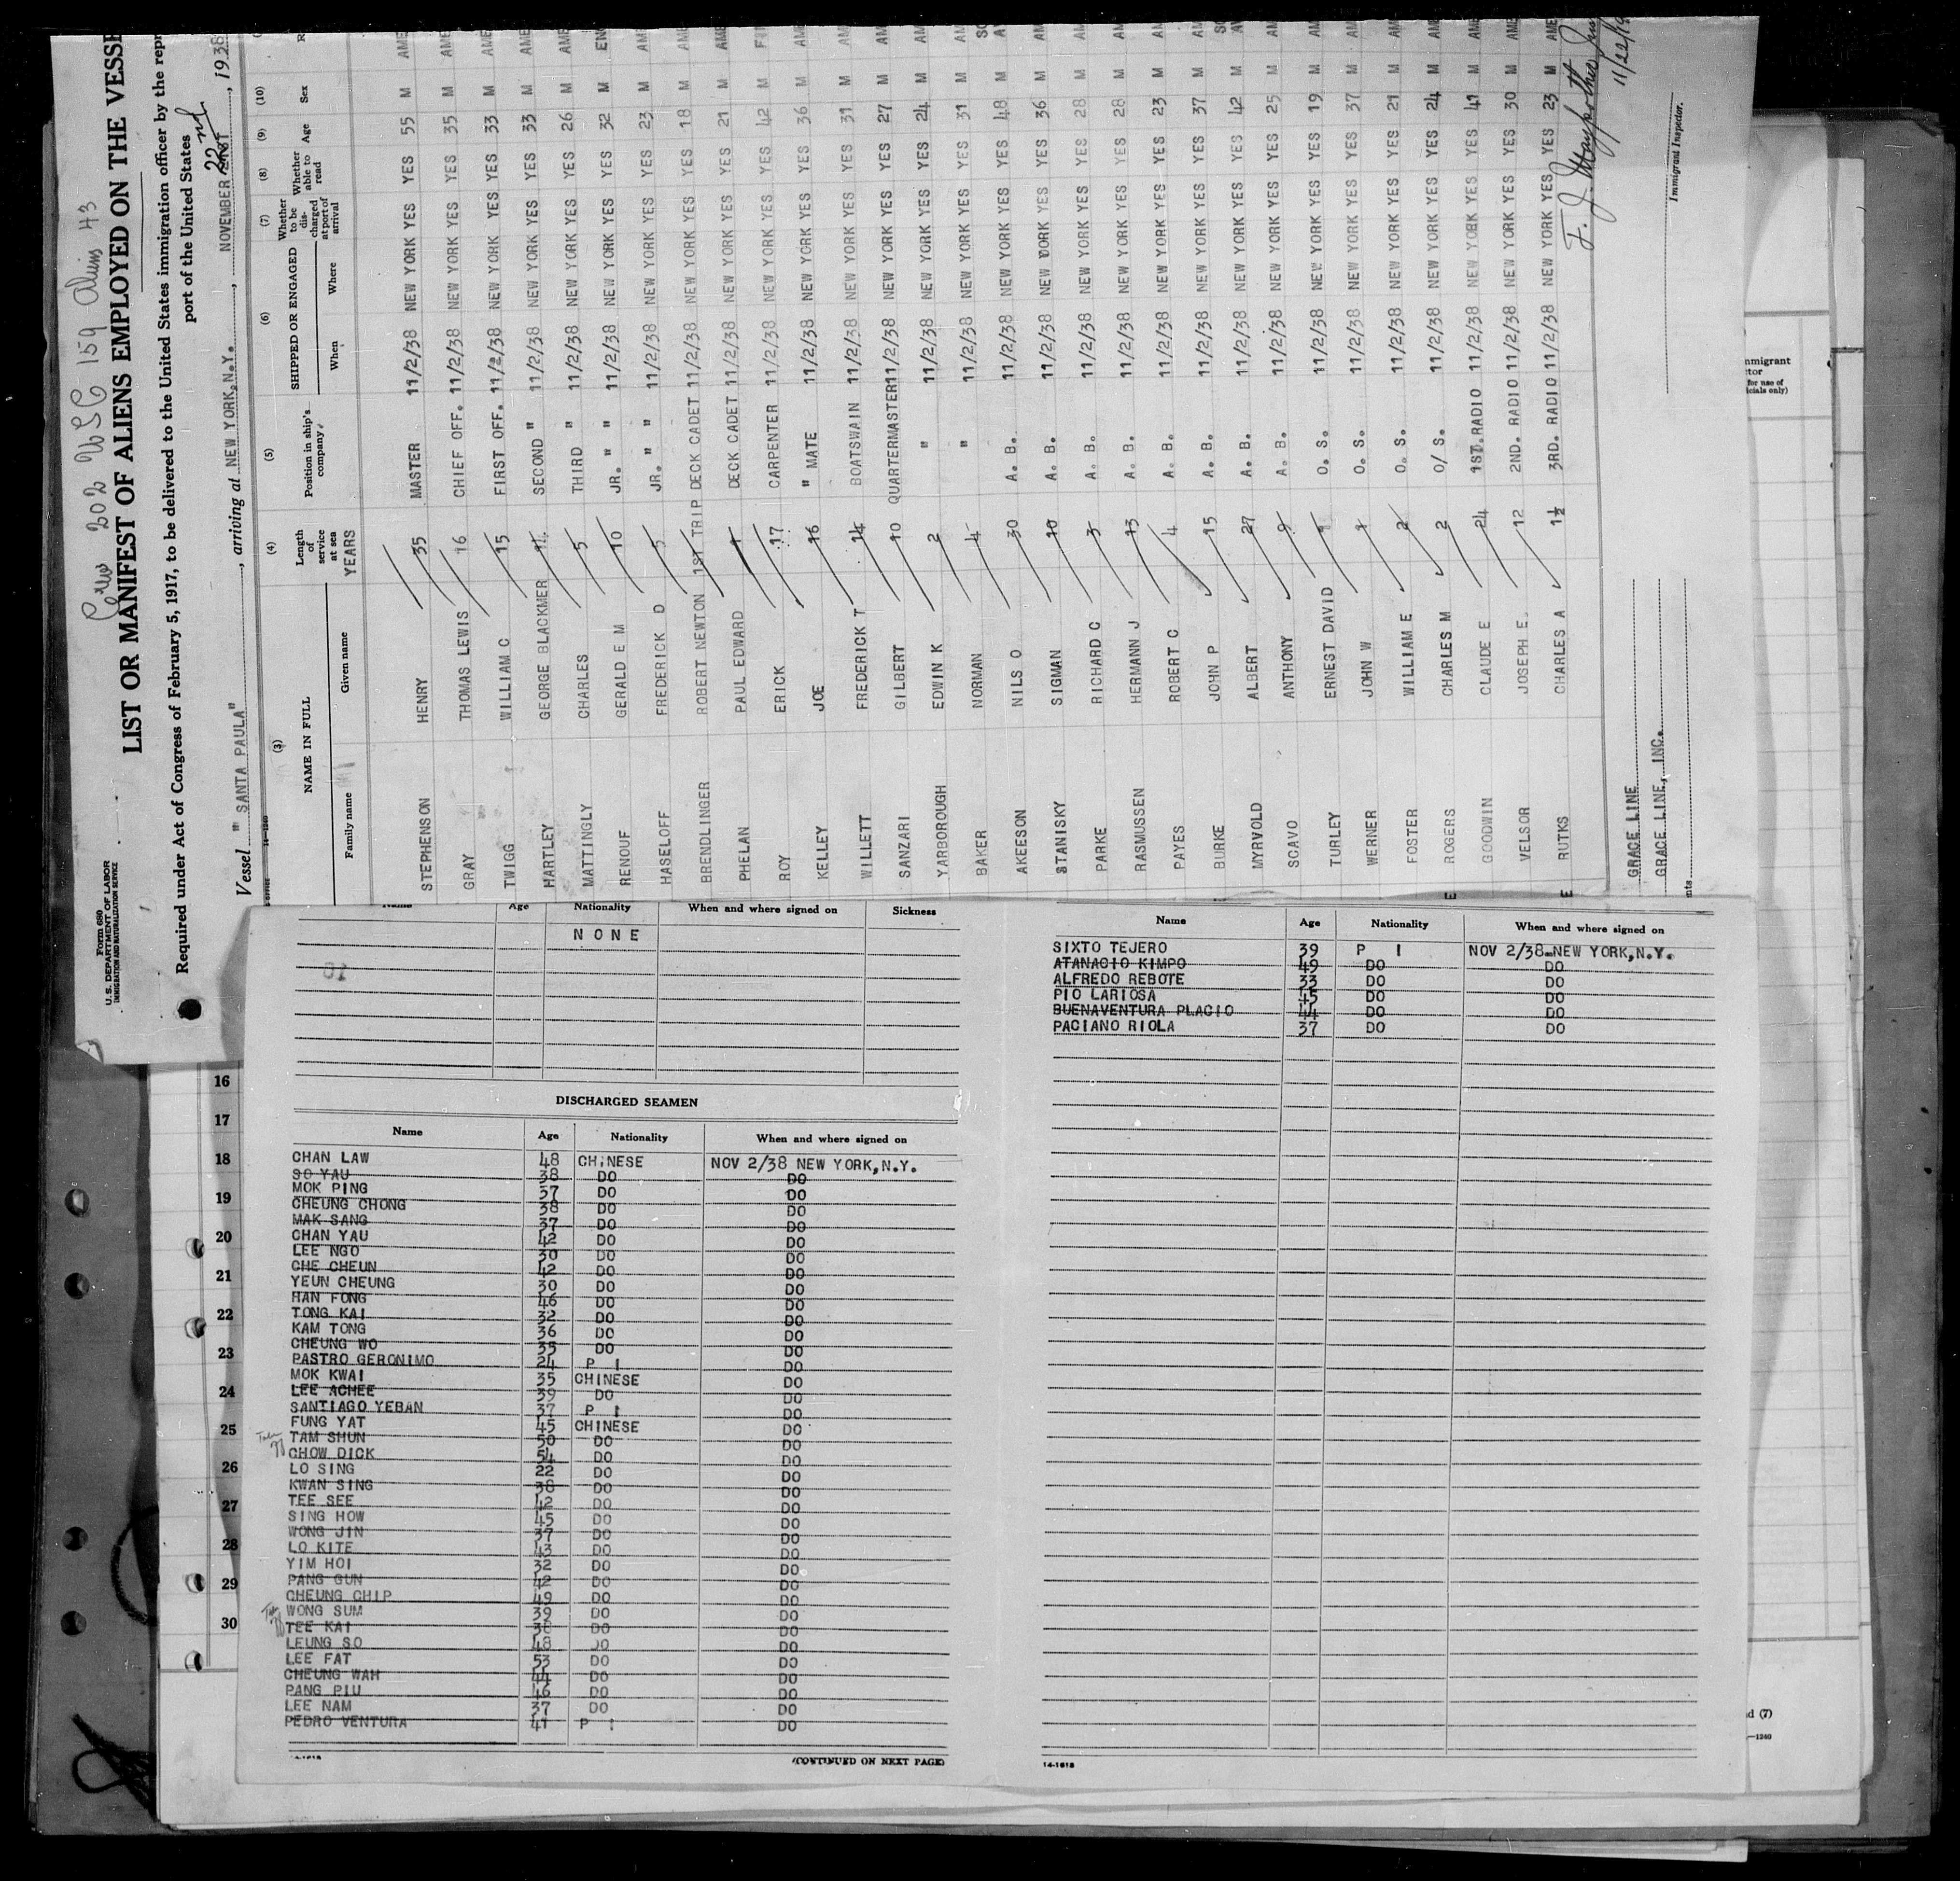 Crew 202 USC 159 Aliens 43
Form 680
U.S. DEPARTMENT OF LABOR
IMMIGRATION AND NATURALIZATION SERVICE
LIST OR MANIFEST OF ALIENS EMPLOYED ON THE VESSE
Required under Act of Congress of February 5, 1917, to be delivered to the United States immigration officer by the repr
port of the United States
Vessel " SANTA PAULA" , arriving at NEW YORK,N.Y. , NOVEMBER 22nd , 1938
(3) (4) (5) (6) (7) (8) (9) (10)
NAME IN FULL Length of service at sea Position in ship's company SHIPPED OR ENGAGED Whether to be discharged at port of arrival Whether able to read Age Sex R
Family name Given name YEARS When Where
STEPHENSON HENRY 35 MASTER 11/2/38 NEW YORK YES YES 55 M AME
GRAY THOMAS LEWIS 16 CHIEF OFF. 11/2/38 NEW YORK YES YES 35 M AME
TWIGG WILLIAM C 15 FIRST OFF. 11/2/38 NEW YORK YES YES 33 M AME
HARTLEY GEORGE BLACKMER 14 SECOND " 11/2/38 NEW YORK YES YES 33 M AME
MATTINGLY CHARLES 5 THIRD " 11/2/38 NEW YORK YES YES 26 M AME
RENOUF GERALD E M 10 JR. " " 11/2/38 NEW YORK YES YES 32 M ENG
HASELOFF FREDERICK D 5 JR. " " 11/2/38 NEW YORK YES YES 23 M AME
BRENDLINGER ROBERT NEWTON 1ST TRIP DECK CADET 11/2/38 NEW YORK YES YES 18 M AME
PHELAN PAUL EDWARD 1 DECK CADET 11/2/38 NEW YORK YES YES 21 M AME
ROY ERICK 17 CARPENTER 11/2/38 NEW YORK YES YES 42 M FIN
KELLEY JOE 16 " MATE 11/2/38 NEW YORK YES YES 36 M AME
WILLETT FREDERICK T 14 BOATSWAIN 11/2/38 NEW YORK YES YES 31 M AME
SANZARI GILBERT 10 QUARTERMASTER 11/2/38 NEW YORK YES YES 27 M AM
YARBOROUGH EDWIN K 2 " 11/2/38 NEW YORK YES YES 24 M AM
BAKER NORMAN 4 " 11/2/38 NEW YORK YES YES 31 M AM
AKEESON NILS O 30 A. B. 11/2/38 NEW YORK YES YES 48 M SC AV
STANISKY SIGMAN 10 A. B. 11/2/38 NEW YORK YES YES 36 M AM
PARKE RICHARD C 3 A. B. 11/2/38 NEW YORK YES YES 28 M AM
RASMUSSEN HERMANN J 13 A. B. 11/2/38 NEW YORK YES YES 28 M AM
PAYES ROBERT C 4 A. B. 11/2/38 NEW YORK YES YES 23 M AM
BURKE JOHN P 15 A. B. 11/2/38 NEW YORK YES YES 37 M AM
MYRVOLD ALBERT 27 A. B. 11/2/38 NEW YORK YES YES 42 M SC AV
SCAVO ANTHONY 9 A. B. 11/2/38 NEW YORK YES YES 25 M AM
TURLEY ERNEST DAVID 1 O. S. 11/2/38 NEW YORK YES YES 19 M AM
WERNER JOHN W 1 O. S. 11/2/38 NEW YORK YES YES 37 M AM
FOSTER WILLIAM E 2 O. S. 11/2/38 NEW YORK YES YES 21 M AM
ROGERS CHARLES M 2 O/ S. 11/2/38 NEW YORK YES YES 24 M AM
GOODWIN CLAUDE E 24 1ST. RADIO 11/2/38 NEW YORK YES YES 41 M AME
VELSOR JOSEPH E. 12 2ND. RADIO 11/2/38 NEW YORK YES YES 30 M AME
RUTKS CHARLES A 1½ 3RD. RADIO 11/2/38 NEW YORK YES YES 23 M AME
11/22/19
GRACE LINE
GRACE LINE, INC.
Immigrant Inspector.
Name Age Nationality When and where signed on Sickness
N O N E
DISCHARGED SEAMEN
Name Age Nationality When and where signed on
CHAN LAW 48 CHINESE NOV 2/38 NEW YORK,N.Y.
SO YAU 38 DO DO
MOK PING 37 DO DO
CHEUNG CHONG 38 DO DO
MAK SANG 37 DO DO
CHAN YAU 42 DO DO
LEE NGO 30 DO DO
CHE CHEUN 42 DO DO
YEUN CHEUNG 30 DO DO
HAN FONG 46 DO DO
TONG KAI 32 DO DO
KAM TONG 36 DO DO
CHEUNG WO 35 DO DO
PASTRO GERONIMO 24 P I DO
MOK KWAI 35 CHINESE DO
LEE ACHEE 39 DO DO
SANTIAGO YEBAN 37 P I DO
FUNG YAT 45 CHINESE DO
TAM SHUN 50 DO DO
CHOW DICK 54 DO DO
LO SING 22 DO DO
KWAN SING 38 DO DO
TEE SEE 42 DO DO
SING HOW 45 DO DO
WONG JIN 37 DO DO
LO KITE 43 DO DO
YIM HOI 32 DO DO
PANG GUN 42 DO DO
CHEUNG CHIP 49 DO DO
WONG SUM 39 DO DO
TEE KAI 38 DO DO
LEUNG SO 48 DO DO
LEE FAT 53 DO DO
CHEUNG WAH 44 DO DO
PANG PIU 46 DO DO
LEE NAM 37 DO DO
PEDRO VENTURA 41 P I DO
(CONTINUED ON NEXT PAGE)
Name Age Nationality When and where signed on
SIXTO TEJERO 39 P I NOV 2/38-NEW YORK,N.Y.
ATANACIO KIMPO 49 DO DO
ALFREDO REBOTE 33 DO DO
PIO LARIOSA 45 DO DO
BUENAVENTURA PLACIO 44 DO DO
PACIANO RIOLA 37 DO DO
14-1618
16
17
18
19
20
21
22
23
24
25
26
27
28
29
30
nmigrant
tor
for use of
icials only)
d (7)
—1240